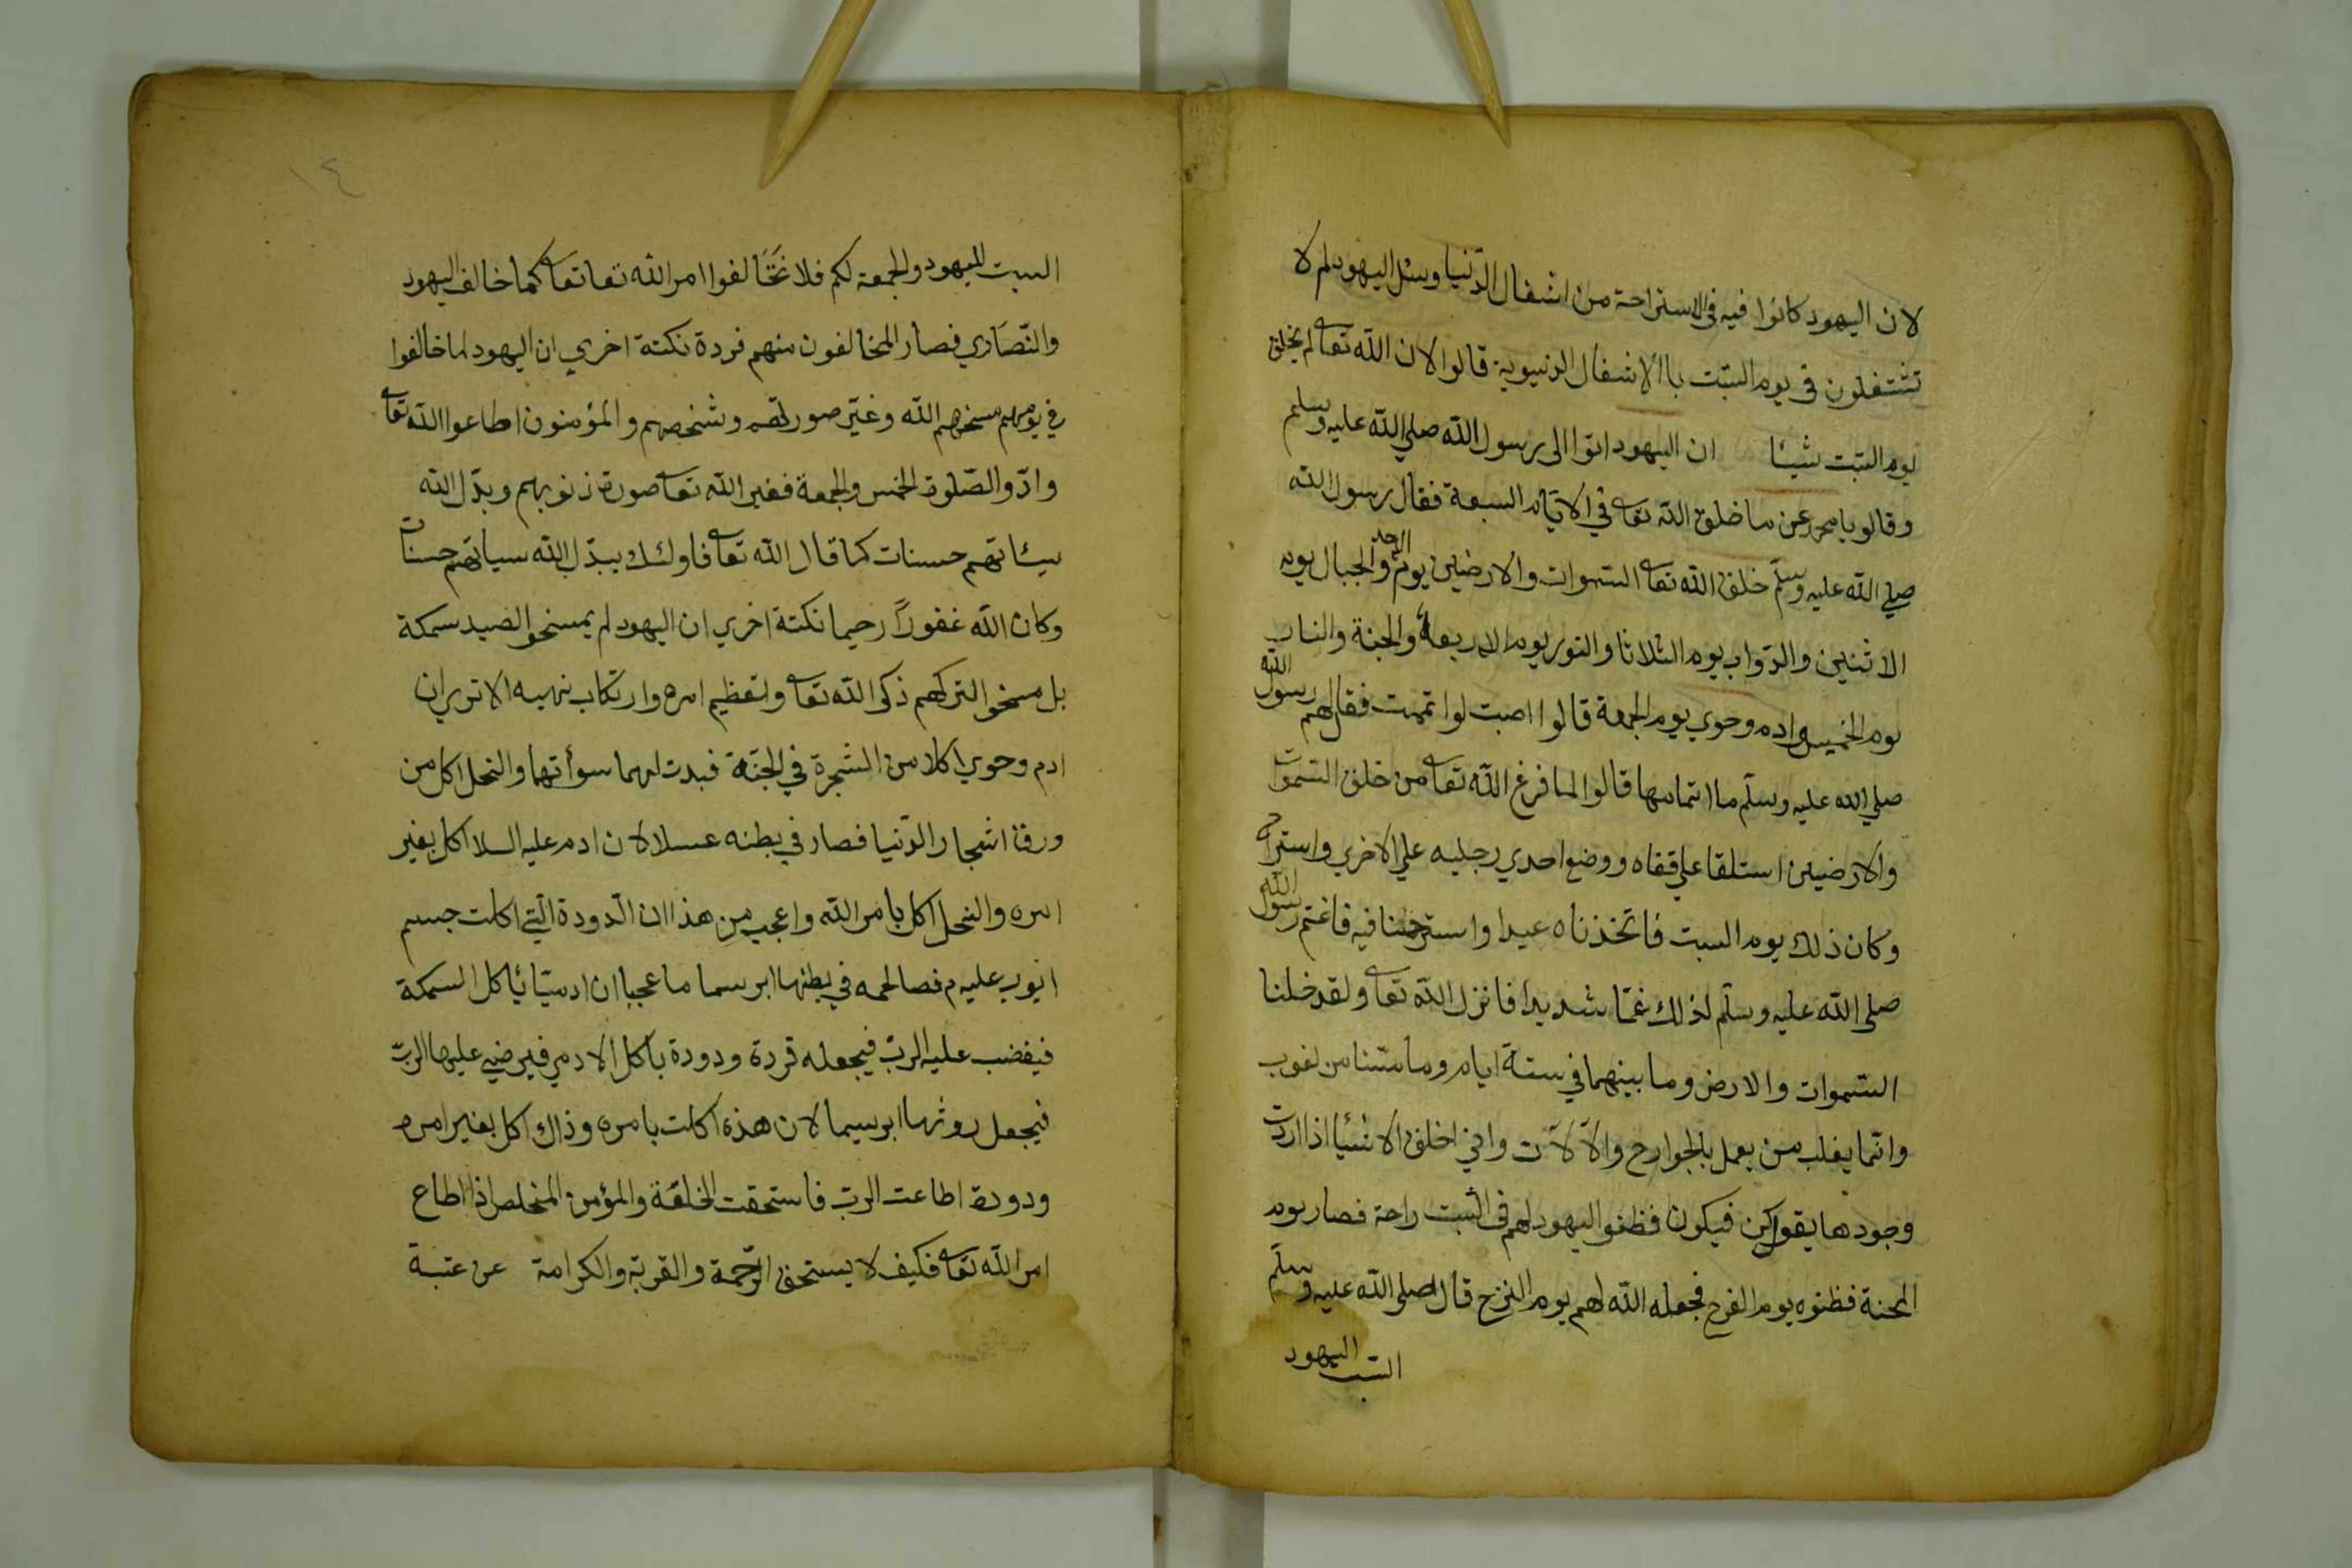 لان اليهود كانوا فيه في الاستراحة من اشغال الدّنيا وسئل اليهود لم لا
تشتغلون في يوم السّبت باالاشغال الدنيوية قالوا لان الله تعالى لم يخلق
يوم السّبت شيئا ان اليهود اتوا الى رسول الله صلي الله عليه وسلم
وقالو يا محمد عن ما خلق الله تعالى في الايّام السبعة فقال رسول الله
صلي الله عليه وسلّم خلق الله تعالى السّموات والارضين يوم الاحد والجبال يوم
الاثنين والدّواب يوم الثلاثا والنور يوم الاربعة والجنة والنار
يوم الخميس وادم وحوي يوم الجمعة قالوا اصبت لوا تممت فقال لهم رسول الله
صلي الله عليه وسلّم ما اتمامها قالوا لما فرغ الله تعالى من خلق السّموات
والارضين استلقا علي قفاه ووضع احدي رجليه علي الاخري واستراح
وكان ذلك يوم السبت فاتّخذناه عيدا واسترحنا فيه فاغتم رسول الله
صلى الله عليه وسلّم لذلك غمّا شديدا فانزل الله تعالى ولقد خلنا
السّموات والارض وما بينهما في ستة ايام وما مسّنا من لغوب
وانّما يغلب من يعمل بالجوارح والآلآت واني اخلق الاشئيا اذا اردت
وجودها يقول كن فيكون فظنوا اليهود لهم في السّبت راحة فصار يوم
المحنة فظنوه يوم الفرح فجعله الله لهم يوم النزح قال صلى الله عليه وسلّم
السّبت اليهود
١٤
السبت لليهود والجمعة لكم فلا تَتَخَالفوا امر الله تعا تعالى كما خالف اليهود
والنّصَاري فصار المخالفون منهم قردة نكتة اخري ان اليهود لما خالفوا
في يومهم مسخهم الله وغيّر صورتهم وشخصهم والمؤمنون اطاعوا الله تعالى
وادّوا الصّلوة الخمس والجمعة فغير الله تعالى صورة ذنوبهم وبدّل الله
سيئاتهم حسنات كما قال الله تعالى فاولئك يبدّل الله سياتهم حسنات
وكان الله غفورًا رحيما نكتة اخري ان اليهود لم يمسخوا لصيد سمكة
بل مسخوا لتركهم ذكر الله تعالى وتعظيم امره وارتكاب نهيه الا تري ان
ادم وحوي اكلا من الشجرة في الجنّة فبدت لهما سوأتهما والنحل اكل من
ورق اشجار الدّنيا فصار في بطنه عسلا لان ادم عليه السلا اكل بغير
امره والنحل اكل بامر الله واعجب من هذا ان الدّودة الّتي اكلت جسم
ايّوب عليه م فصا لحمه في بطنها ابرسما ما عجبا ان ادميّا يأكل السمكة
فيغضب عليه الربّ فيجعله قردة ودودة يأكل الادمي فيرضي عليها الربّ
فيجعل روثها ابرسيما لان هذه اكلت بامره وذاك اكل بغير امره
ودودة اطاعت الربّ فاستحقت الخلعَة والمؤمن المخلص اذا اطاع
امر الله تعالى فكيف لا يستحق الرّحمة والقربة والكرامة عن عتبة